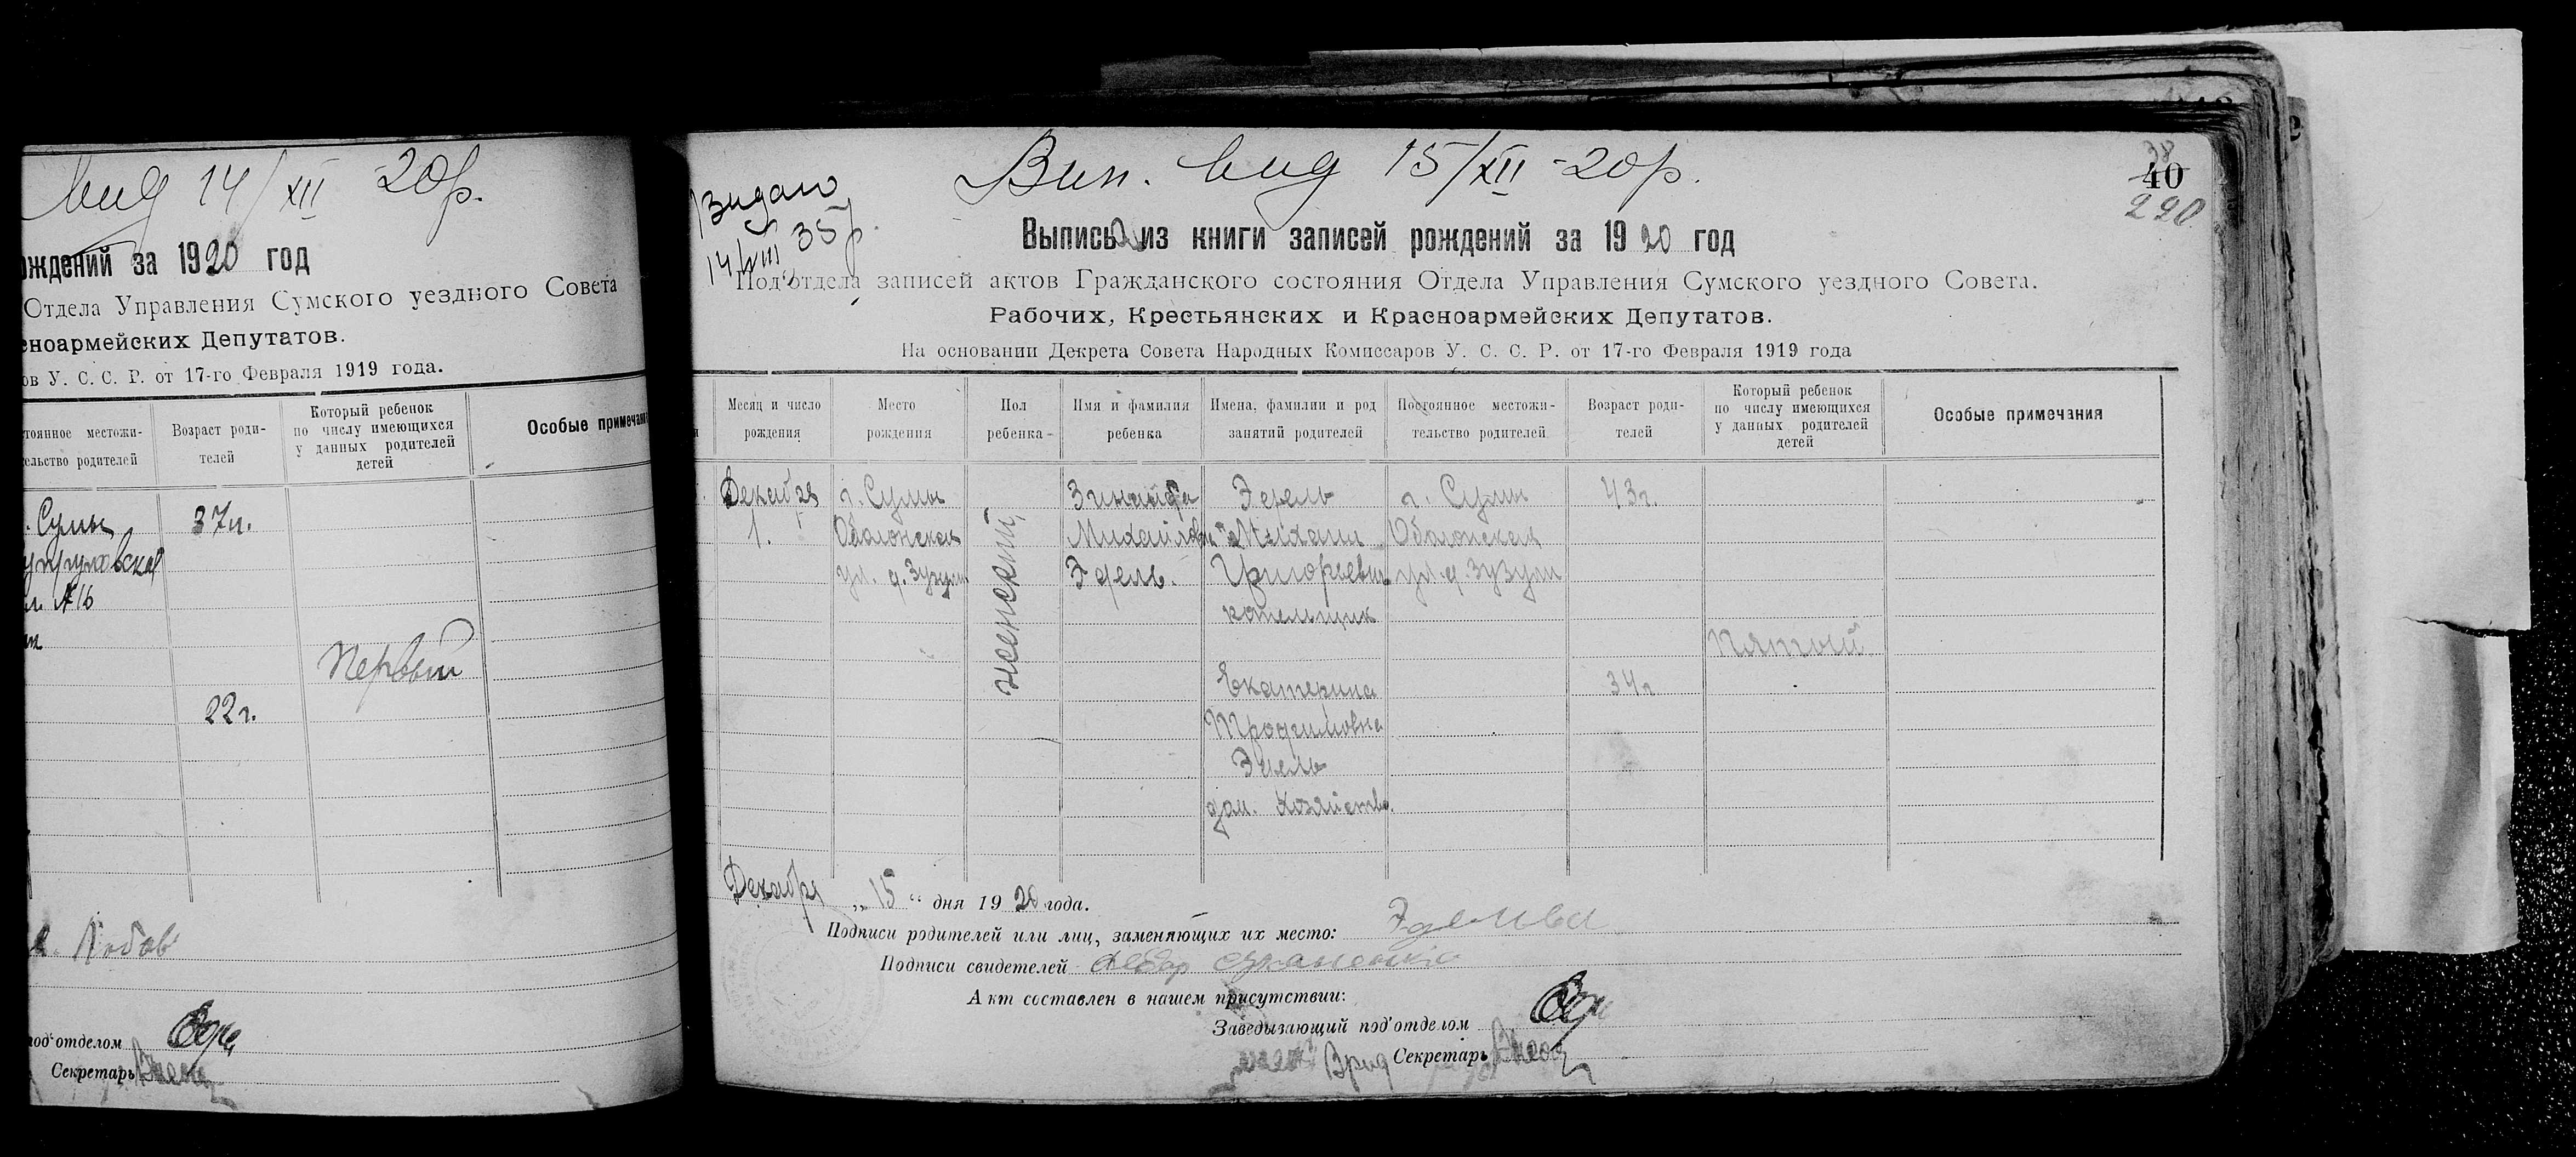 вид 14/XII 20р.
ождений за 1920 год
Отдела Управления Сумского уездного Совета
сноармейских Депутатов.
ов У. С. С. Р. от 17-го Февраля 1919 года.
стоянное местожи-
тельство родителей
Возраст роди-
телей
Который ребенок
по числу имеющихся
у данных родителей
детей
Особые примечан
. Сумы
37 л.
Первый
22 г.
под'отделом
Секретарь
38
40
290
Вип. вид 15/XII -20р.
Видано
14/VIII 35р.
Выпись из книги записей рождений за 1920 год
Под'отдела записей актов Гражданского состояния Отдела Управления Сумского уездного Совета.
Рабочих, Крестьянских и Красноармейских Депутатов.
На основании Декрета Совета Народных Комиссаров У. С. С. Р. от 17-го Февраля 1919 года
Месяц и число
рождения
Место
рождения
Пол
ребенка
Имя и фамилия
ребенка
Имена, фамилии и род
занятий родителей
Постоянное местожи-
тельство родителей
Возраст роди-
телей
Который ребенок
по числу имеющихся
у данных родителей
детей
Особые примечания
1.
г. Сумы
Оболонская
ул. д. Зузули
женский
Зинаида
Михайловна
Эдель.
Эдель
Михаил
Григорьевич
котельщик
г. Сумы
Оболонская
ул. д. Зузули
43 г.
Пятый
Екатерина
Трофимовна
Эдель
дом. хозяйство.
34 г.
Декабря „15“ дня 1920 года.
Подписи родителей или лиц, заменяющих их место:
Подписи свидетелей
Акт составлен в нашем присутствии:
Заведывающий под'отделом
Врид Секретарь